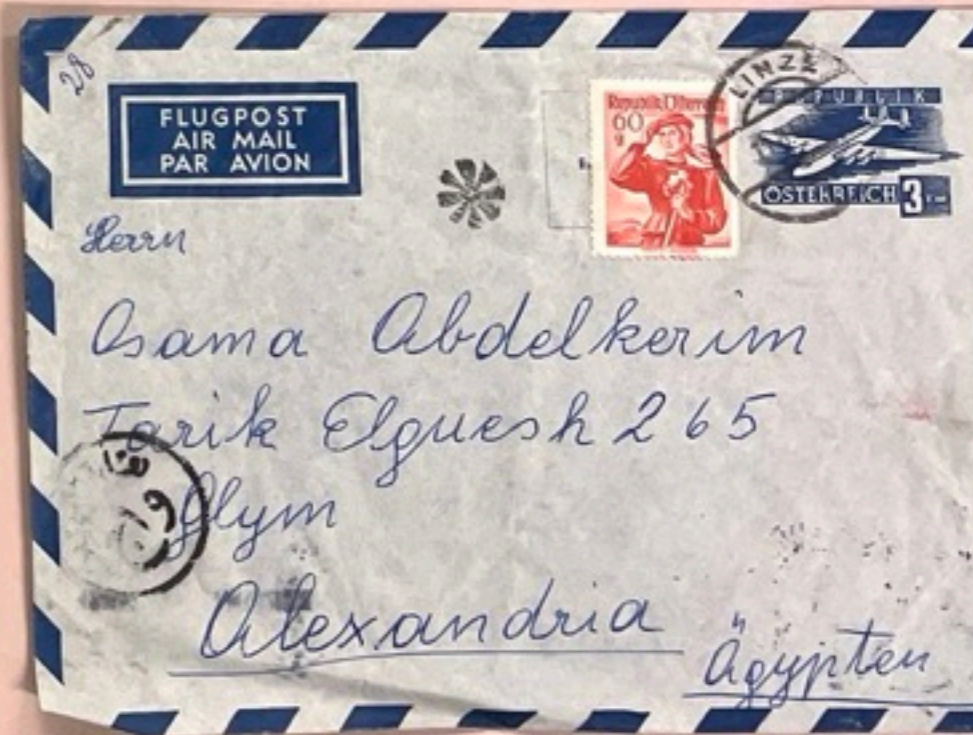 28
FLUGPOST
AIR MAIL
PAR AVION
Republik Österreich
60
g
LINZ
REPUBLIK
ÖSTERREICH 3
Herrn
Osama Abdelkerim
Tarik Elguesh 265
Glym
Alexandria
Ägypten